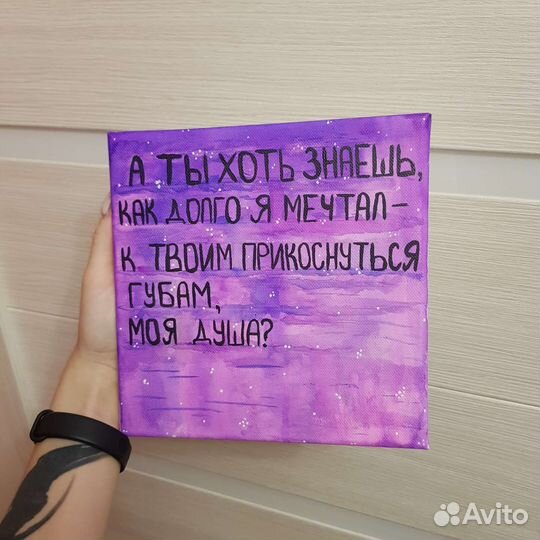 А ТЫ ХОТЬ ЗНАЕШЬ,
КАК ДОЛГО Я МЕЧТАЛ –
К ТВОИМ ПРИКОСНУТЬСЯ
ГУБАМ,
МОЯ ДУША?
Avito